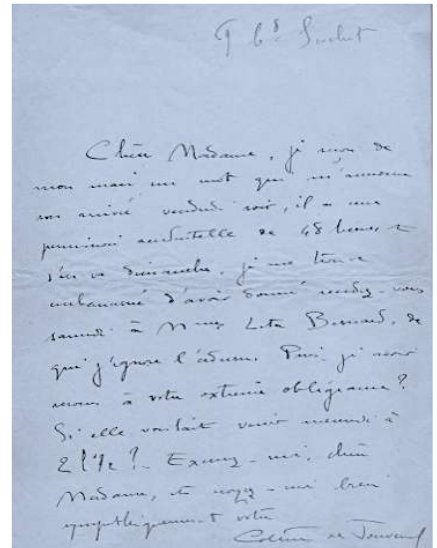 9 bd Suchet
Chère Madame, je reçois de
mon mari un mot qui m'annonce
son arrivée vendredi soir, il a une
permission accidentelle de 48 heures et
s'en va dimanche. je me trouve
embarrassée d'avoir donné rendez-vous
samedi à Mme Lita Besnard, de
qui j'ignore l'adresse. Puis-je avoir
recours à votre extrême obligeance?
Si elle voulait venir mercredi à
2 h 1/2 ? - Excusez-moi, chère
Madame, et croyez-moi bien
sympathiquement votre
Colette de Jouvenel